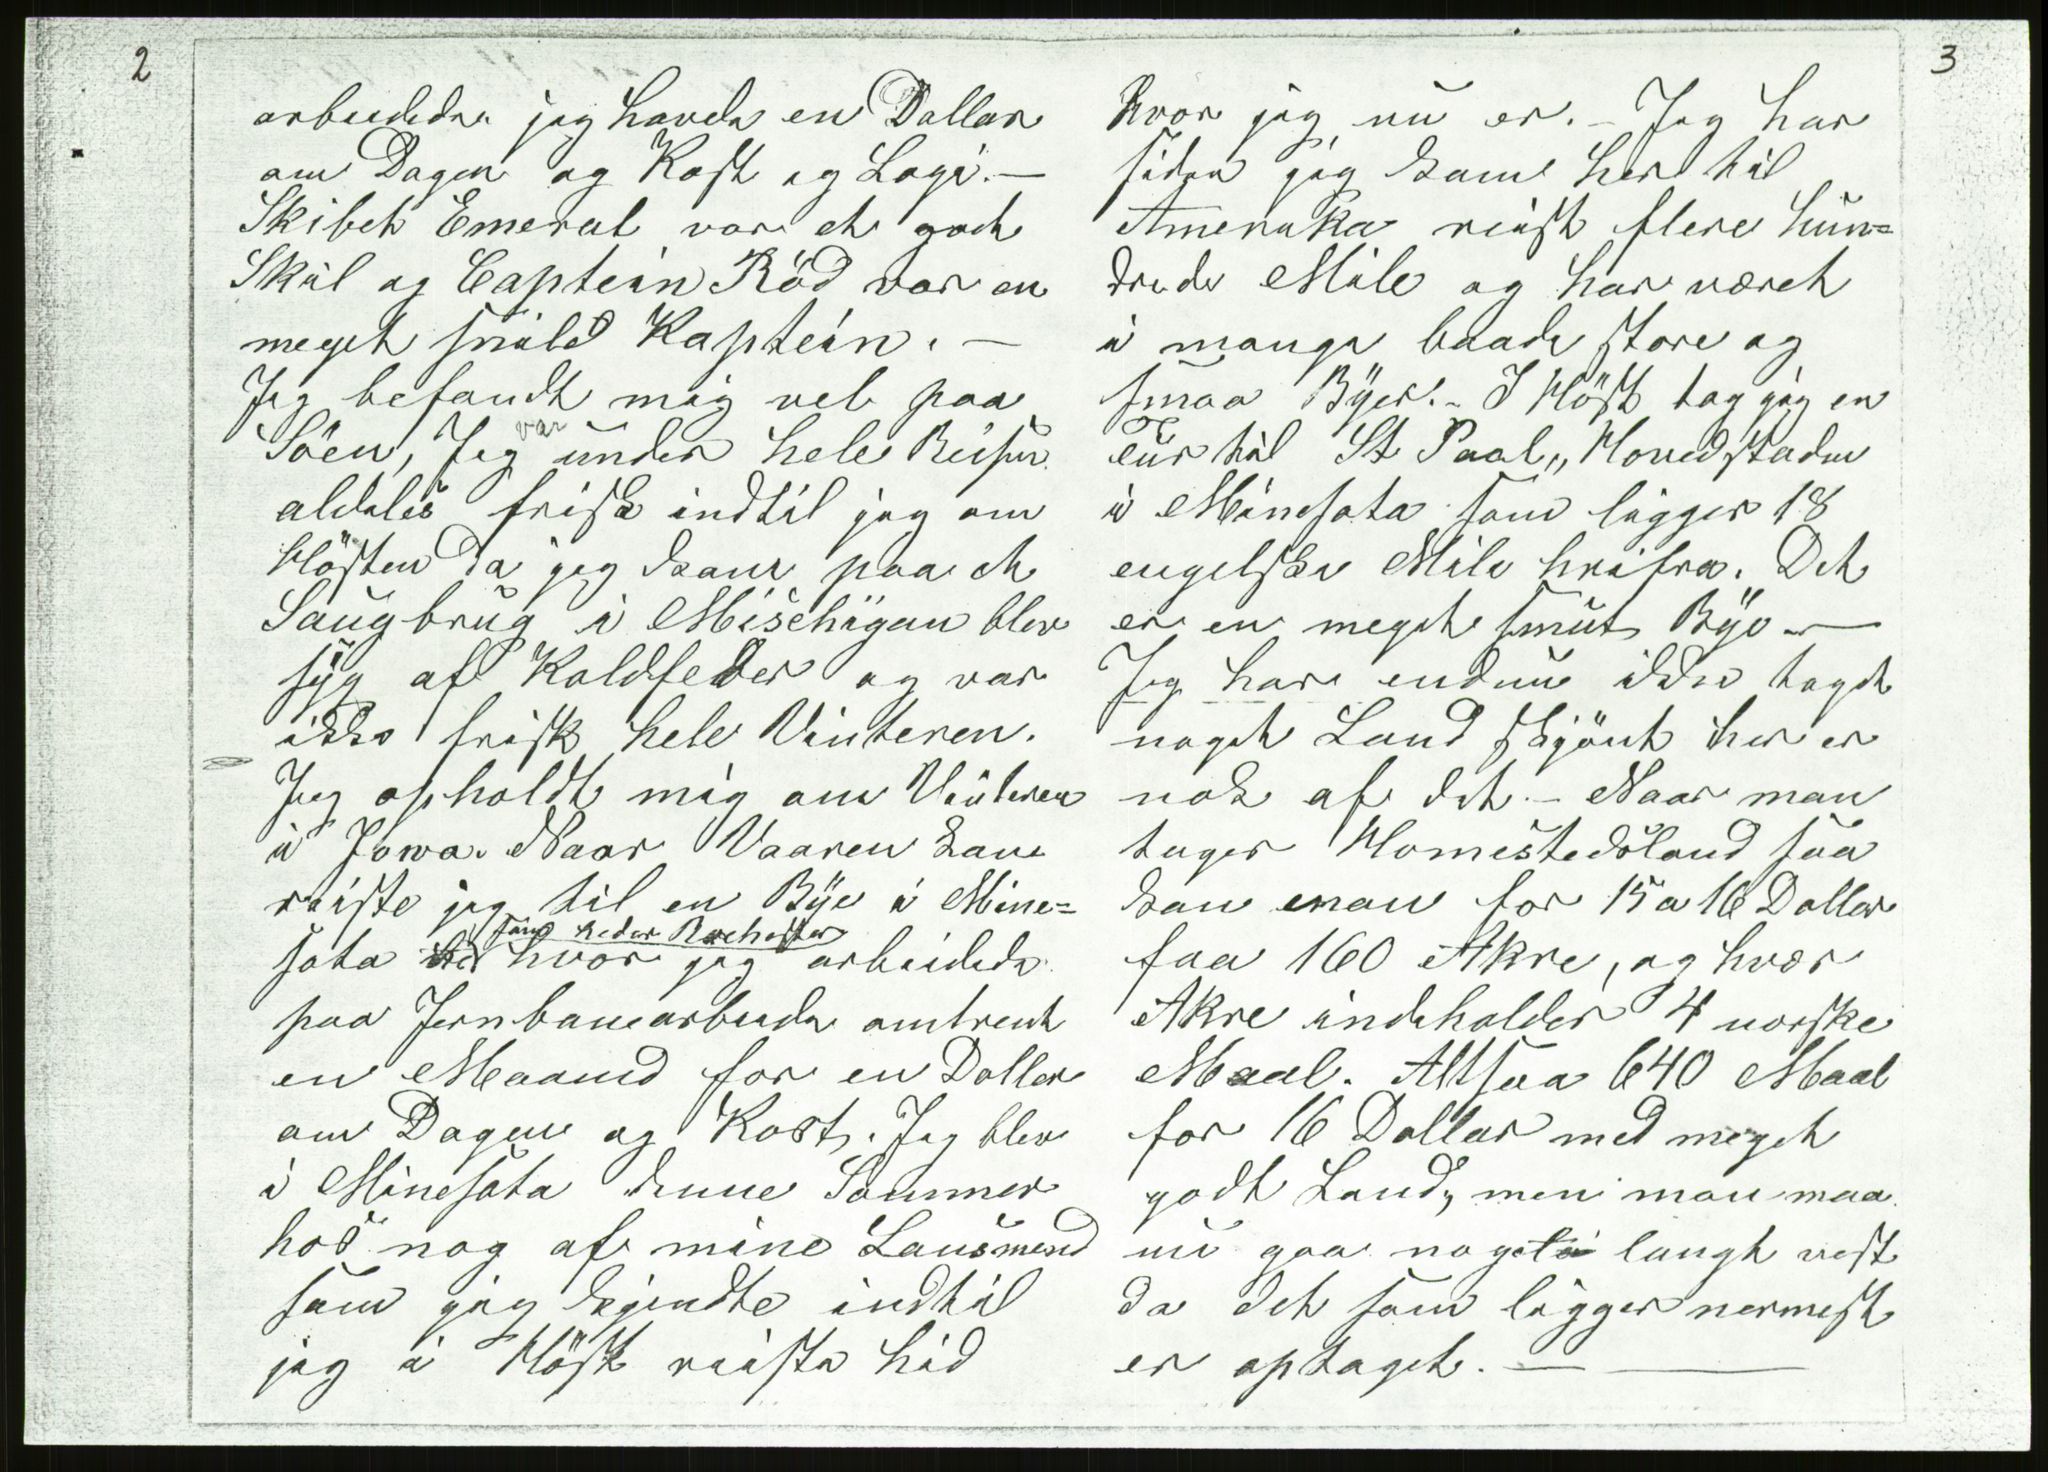 2
arbeidede. jeg havde en Dollar
om Dagen og Kost og Logi. —
Skibet Emeral var et godt
Skib og Captein Röd var en
meget snild Kaptein. —
Jeg befandt mig vel paa
Söen, Jeg var under hele Reisen
aldeles frisk indtil jeg om
Hösten da jeg kom paa et
Saugbrug i Mischigan blev
syg af Koldfeber og var
ikke frisk hele Vinteren.
Jeg opholdt mig om Vinteren
i Jowa. Naar Vaaren kom
reiste jeg til en Bye i Mine=
sota som heder Rochester hvor jeg arbeidede
paa Jernbanearbeide omtrent
en Maaned for en Dollar
om Dagen og Kost. Jeg blev
i Minesota denne Sommer
hos nog af mine Lansmend
som jeg kjendte indtil
jeg i Höst reiste hid
3
hvor jeg nu er. — Jeg har
siden jeg kom her til
Ameraka reist flere hun=
drede Mile og har været
i mange baade store og
smaa Byer. — I Höst tog jeg en
Tur til St Paal,, Hovedstaden
i Minesota som ligger 18
engelske Mile herifra. Det
er en meget smuk Bye —
Jeg har endnu ikke taget
noget Land skjönt her er
nok af det. — Naar man
tager Homestedsland saa
kan man for 15 a 16 Dollar
faa 160 Akre, og hver
Akre indeholder 4 norske
Maal. Altsaa 640 Maal
for 16 Dollar med meget
godt Land, men man maa
nu gaa noget langt vest
da det som ligger nermest
er optaget. —